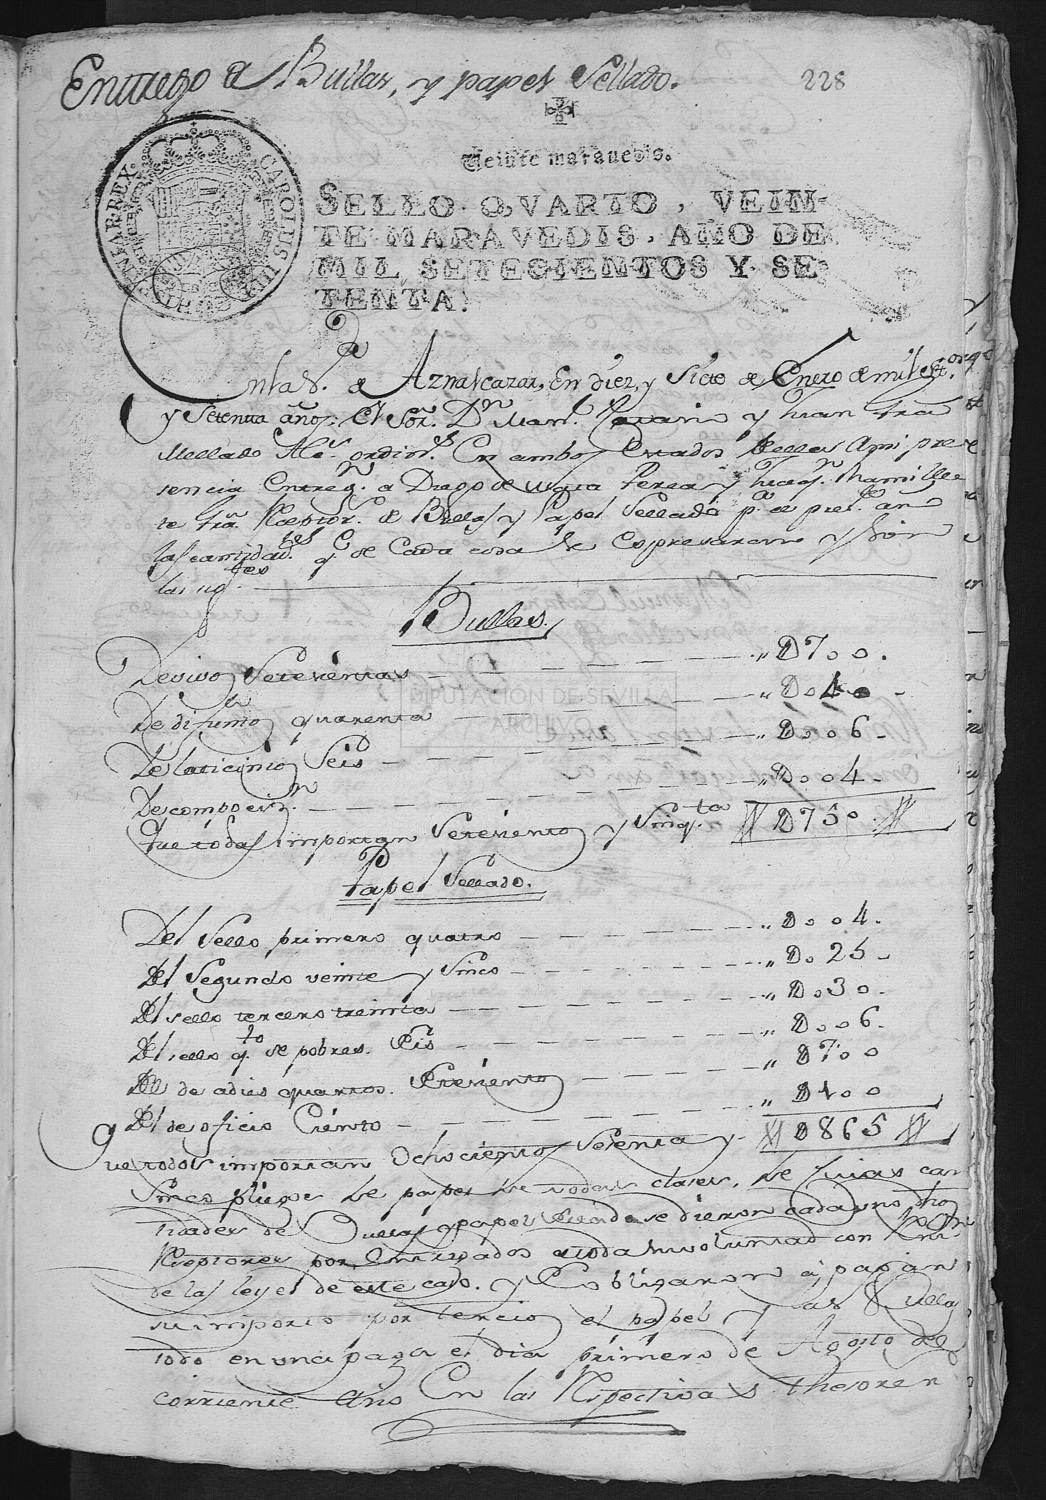 Entrego de Bullas, y papel Sellado.
228
Veinte maravedis.
SELLO QVARTO, VEIN-
TE MARAVEDIS, AÑO DE
MIL SETECIENTOS Y SE-
TENTA.
CAROLUS III D G HISPANIAR REX
En la V.ª de Aznalcazar, En diez, y Siete de Enero de mil Set.os
y Setenta años. El Sor. Dn Man.l y Juan
Mellado Al.es ordin.s En ambos Estados Ante mi pre
sencia Entreg.n a Diego de Perea y
te Rezeptor.s de Bullas y Papel Sellado p.a el pres.te año
las cantidades q de Cada cosa se Espresaran y Son
las sig.tes
Bullas.
De vivos Setezientas — „ D700.
De difuntos quarenta — „ D040.
De laticinios Seis — „ D006.
De composiz.n — „ D004.
Que todas importan Setezientos y Sinq.ta D750.
Papel Sellado.
Del Sello primero quatro — „ D004.
Del Segundo veinte y Sinco — „ D025.
Del sello tercero treinta — „ D030.
Del sello q.to de pobres. Seis — „ D006.
Del de adies quartos. Setezientos — „ D700
Del de oficio Ciento — „ D100
Que todos importan Ochocientos Sesenta y D865
Sinco pliegos de papel de todas clases, de Cuias can
tidades de Bullas y papel Sellado se dieron cada uno dhos
Rezeptores por Entregados a toda su voluntad con
de las leyes de este caso. y Se obligaron a pagar
su importo por tercios el papel y las Bullas
todo en una paga el dia primero de Agosto del
corriente Año En las Respectivas thesoreri
DIPUTACIÓN DE SEVILLA
ARCHIVO